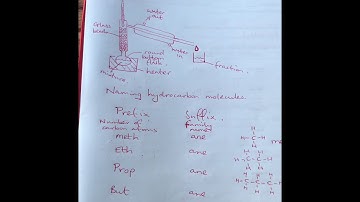 water
out
Glass
beads
round
bottom
flask
water
in
heater
mixture
fraction
Naming hydrocarbon molecules
Prefix Suffix
Number of
carbon atoms
name
meth ane
H
H-C-H
H
Eth ane
H H
H-C-C-H
H H
Prop ane
H H H
H-C-C-C-H
H H H
But ane